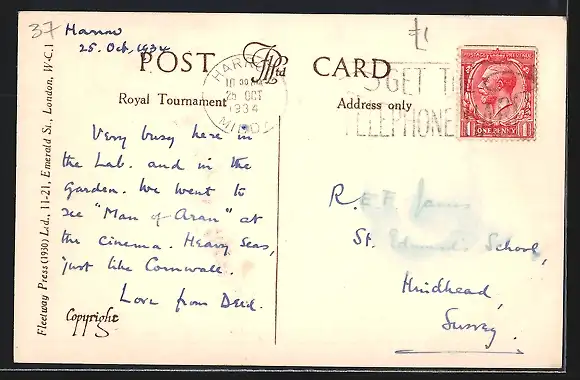 37
Harrow
25. Oct. 1934
£1
POST CARD
Royal Tournament
Address only
HARROW
25 OCT
1934
GET
TELEPHONE
ONE PENNY
Very busy here in
the Lab. and in the
garden. We went to
see "Man of Aran" at
the cinema. Heavy seas,
just like Cornwall.
Love from Dad.
Copyright
R. E. F. James
St. Edmund's School,
Hindhead,
Surrey.
Fleetway Press (1930) Ltd., 11-21, Emerald St., London, W.C.1